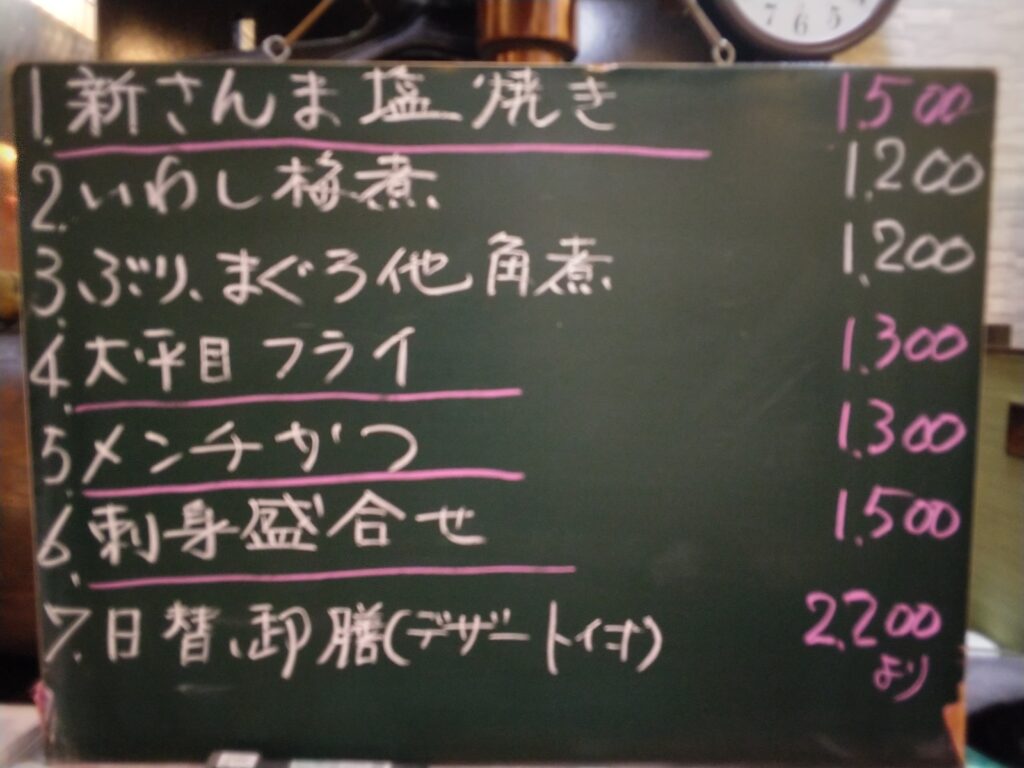 1.新さんま塩焼き 1.500
2.いわし梅煮 1.200
3.ぶり、まぐろ他角煮 1.200
4.大平目フライ 1.300
5.メンチかつ 1.300
6.刺身盛合せ 1.500
7.日替、卸膳(デザート付) 2.200
より
7 6 5